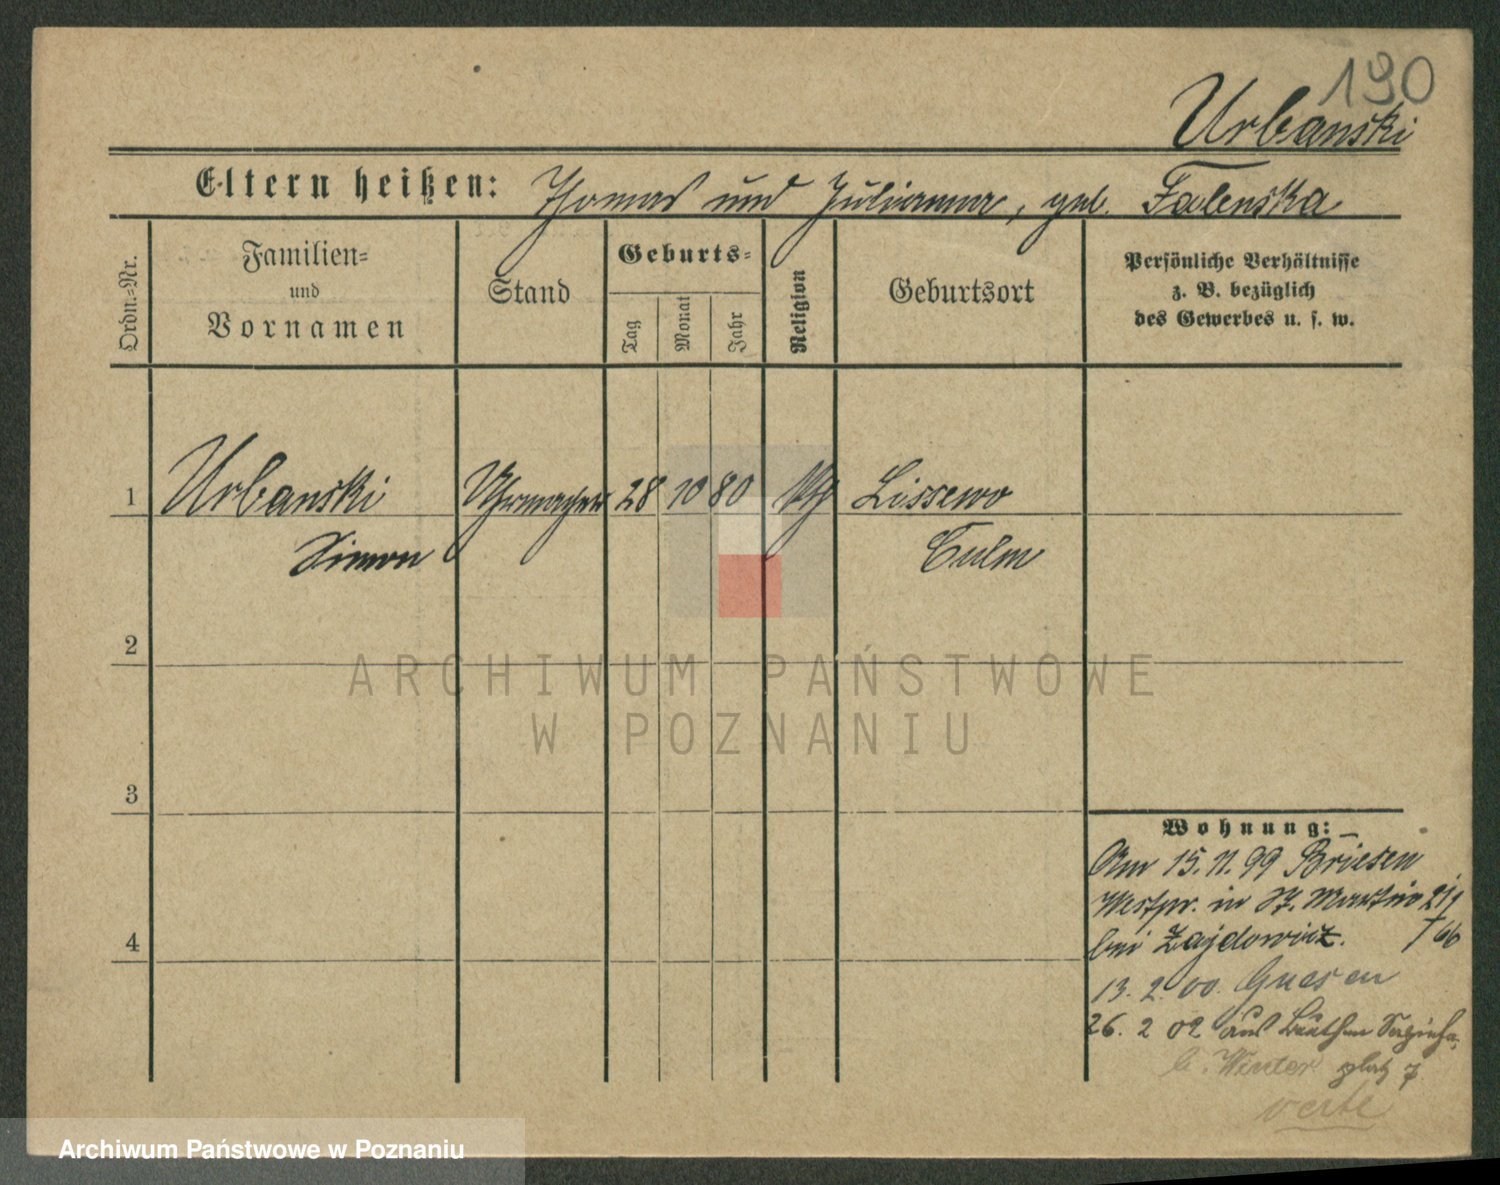 190
Urbanski
Eltern heißen: Thomas und Julianna, geb. Falenska
Ordn.-Nr.
Familien-
und
Vornamen
Stand
Geburts-
Tag
Monat
Jahr
Religion
Geburtsort
Persönliche Verhältnisse
z. B. bezüglich
des Gewerbes u. s. w.
1
Urbanski
Uhrmacher
28
10
80
kth
Lissewo
Simon
Culm
2
3
4
Wohnung:
Am 15.11.99 Briesen
Westpr. in St. Martin
bei Zajdowicz. 66
13. 2. 00. Gnesen
26. 2 02 aus Beuthen Sapieha
b. Winter platz 7
verte
ARCHIWUM PAŃSTWOWE
W POZNANIU
Archiwum Państwowe w Poznaniu